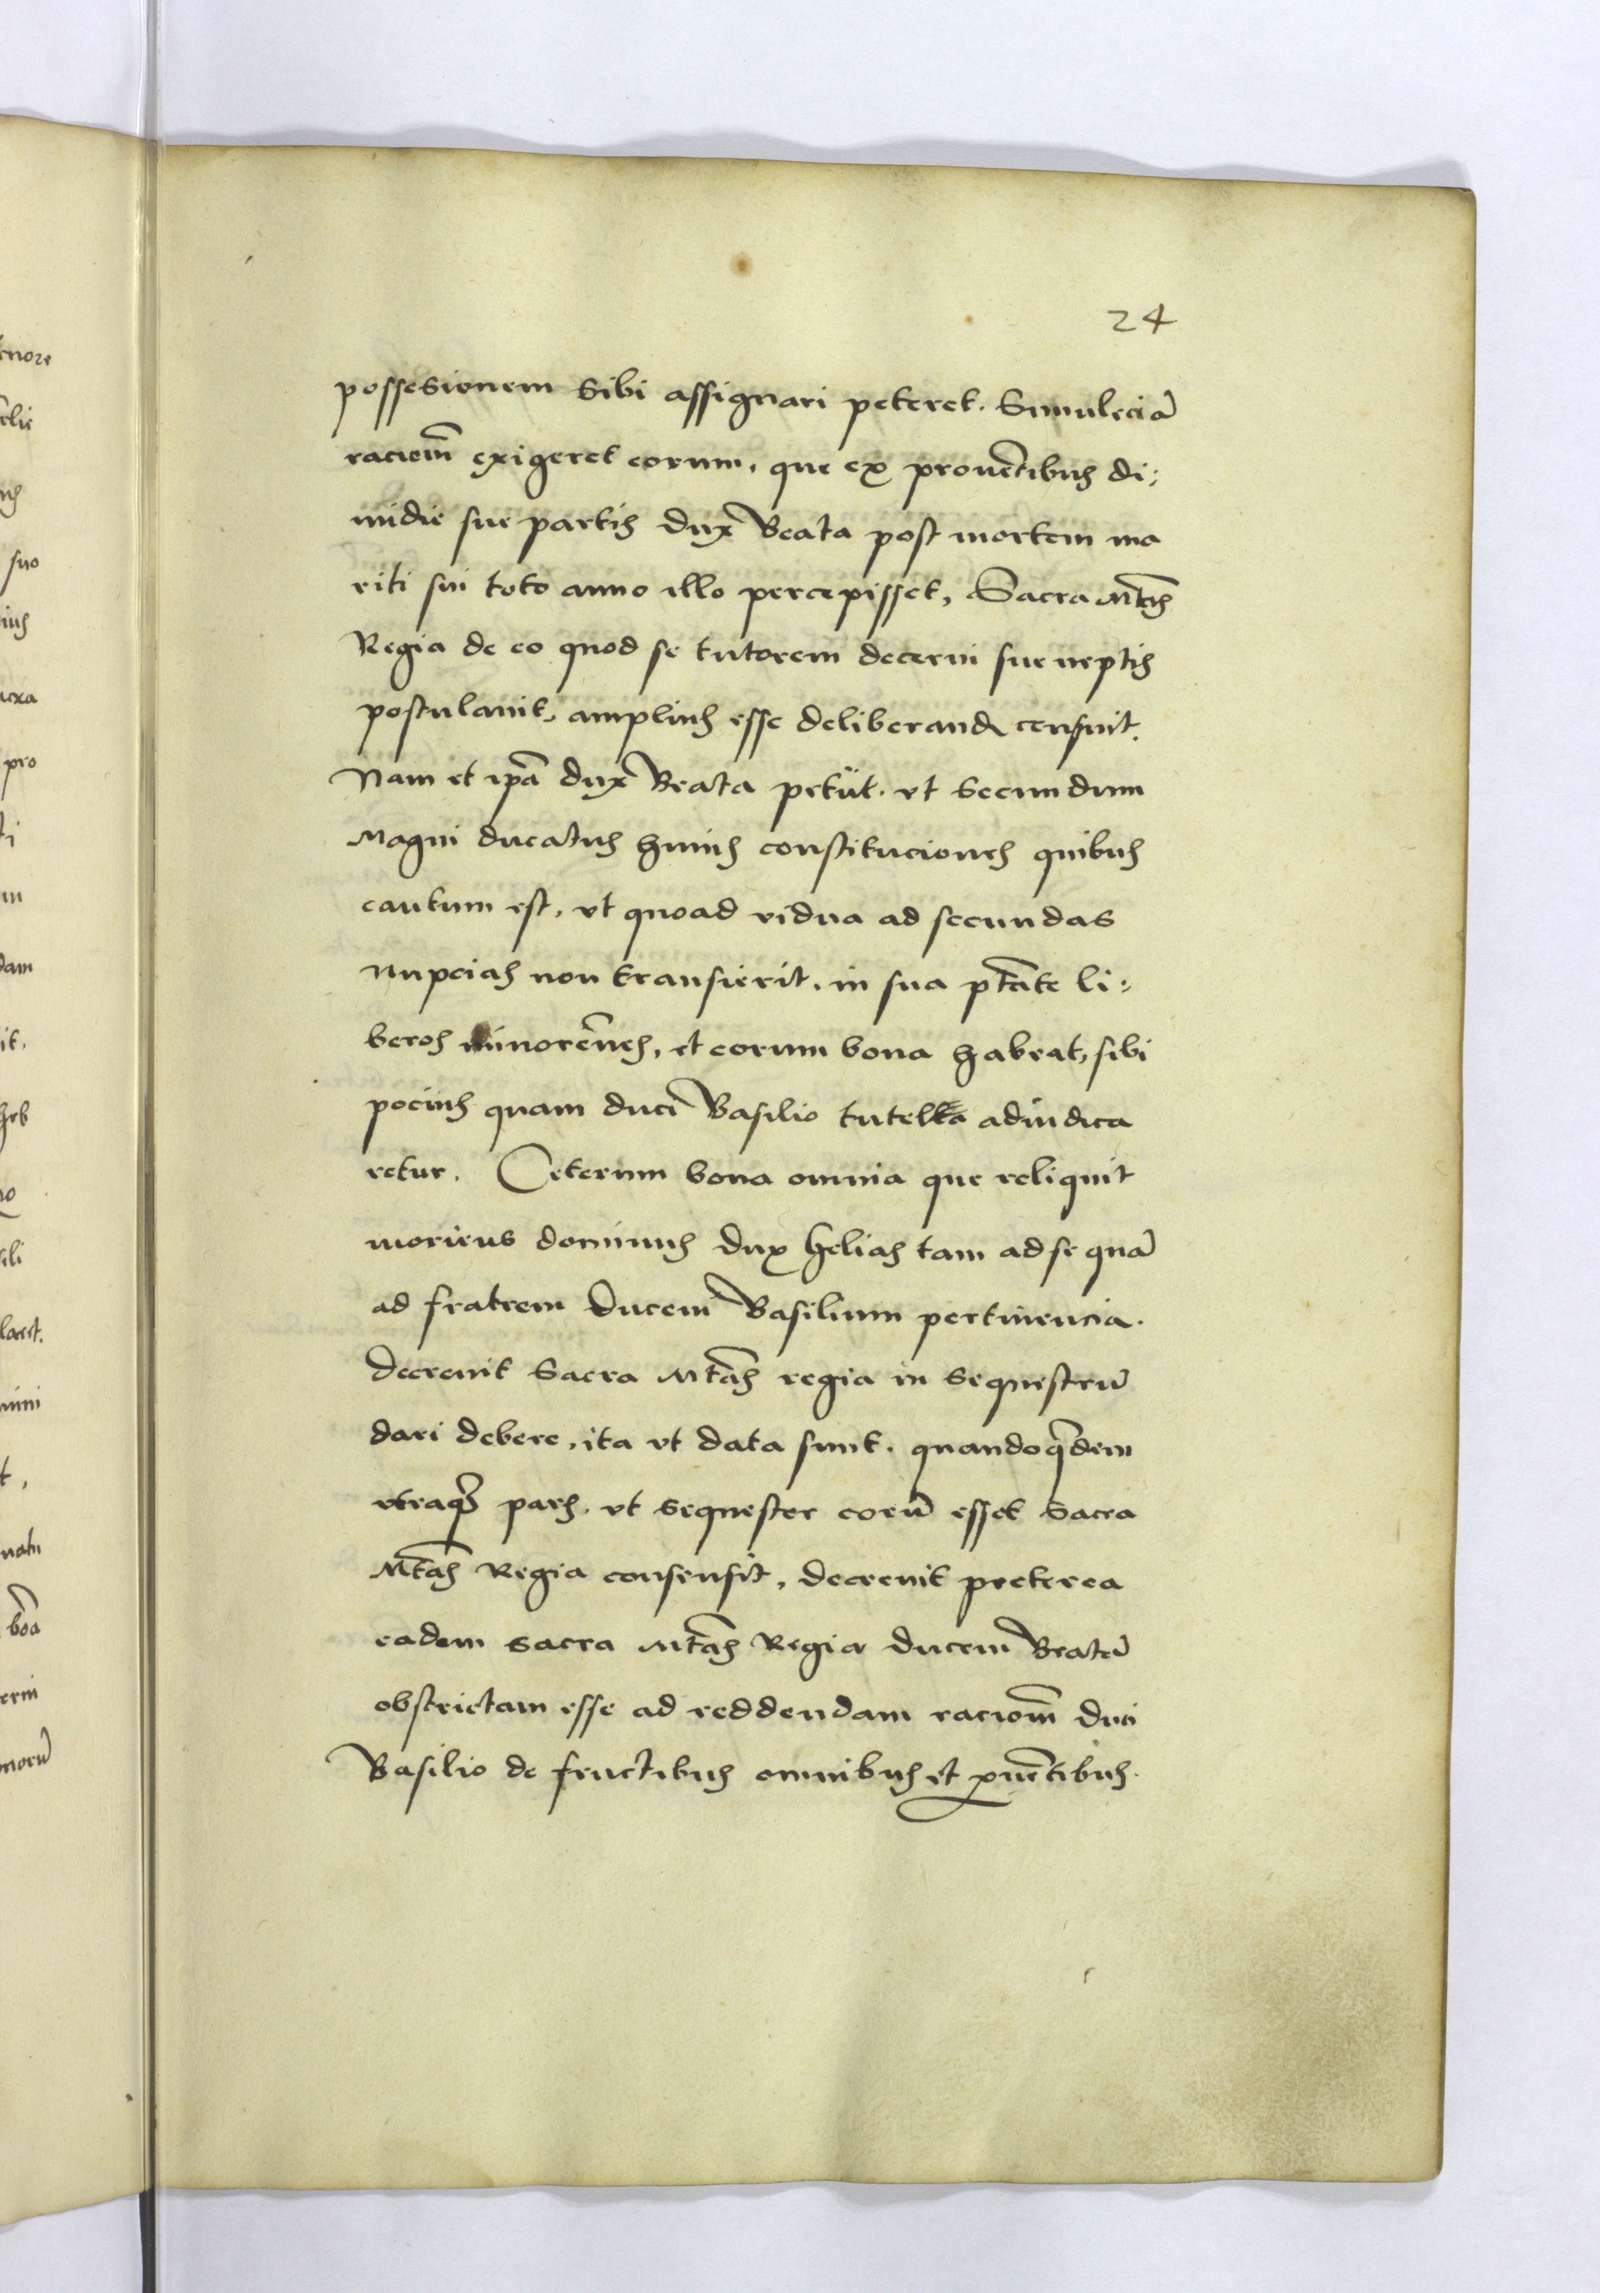 24
possesionem sibi assignari peteret. Simuleciā
raciōm exigeret eorum, que ex prouētibus di:
midie sue partis dux Beata post mortem ma
riti sui toto anno illo percepisset, Sacra Mtās
Regia de eo quod se tutorem decerni sue neptis
postulauit, amplius esse deliberand censuit.
Nam et ip̄a dux Beata petiit. vt secundum
Magni ducatus huius constituciones quibus
cautum est, vt quoad vidua ad secundas
nupcias non transierit, in sua ptāte li:
beros minorēnes, et eorum bona habeat, sibi
pocius quam duci Basilio tutella adiudica
retur. Ceterum bona omnia que reliquit
moriens dominus dux helias tam ad se quā
ad fratrem ducem Basilium pertinencia.
decreuit Sacra Mtās regia in sequestrū
dari debere, ita vt data sunt. quandoq̄dem
vtraq̄ pars. vt sequester eorū esset Sacra
Mtās Regia consensit, decreuit preterea
eadem sacra Mtās Regia ducem Beatā
obstrictam esse ad reddendam raciōm duci
Basilio de fructibus omnibus et ꝓuētibus.